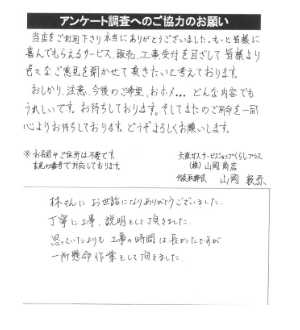 アンケート調査へのご協力のお願い
当店をご利用下さり本当にありがとうございました。もっと皆様に
喜んでもらえるサービス、販売、工事受付を目ざして皆様より
色々なご意見を聞かせて頂きたいと考えております。
おしかり、注意、今後のご希望、おホメ... どんな内容でも
うれしいです。お待ちしております。そしてまたのご用命を一同
心よりお待ちしております。どうぞよろしくお願いします。
※お名前やご住所は不要です。
大阪ガスサービスショップくらしプラス
(株) 山岡商店
山岡
林さんに お世話になりありがとうございました。
丁寧に工事、説明をして頂きました。
思っていたよりも 工事の時間は長かったですが
一所懸命 作業をして頂きました。